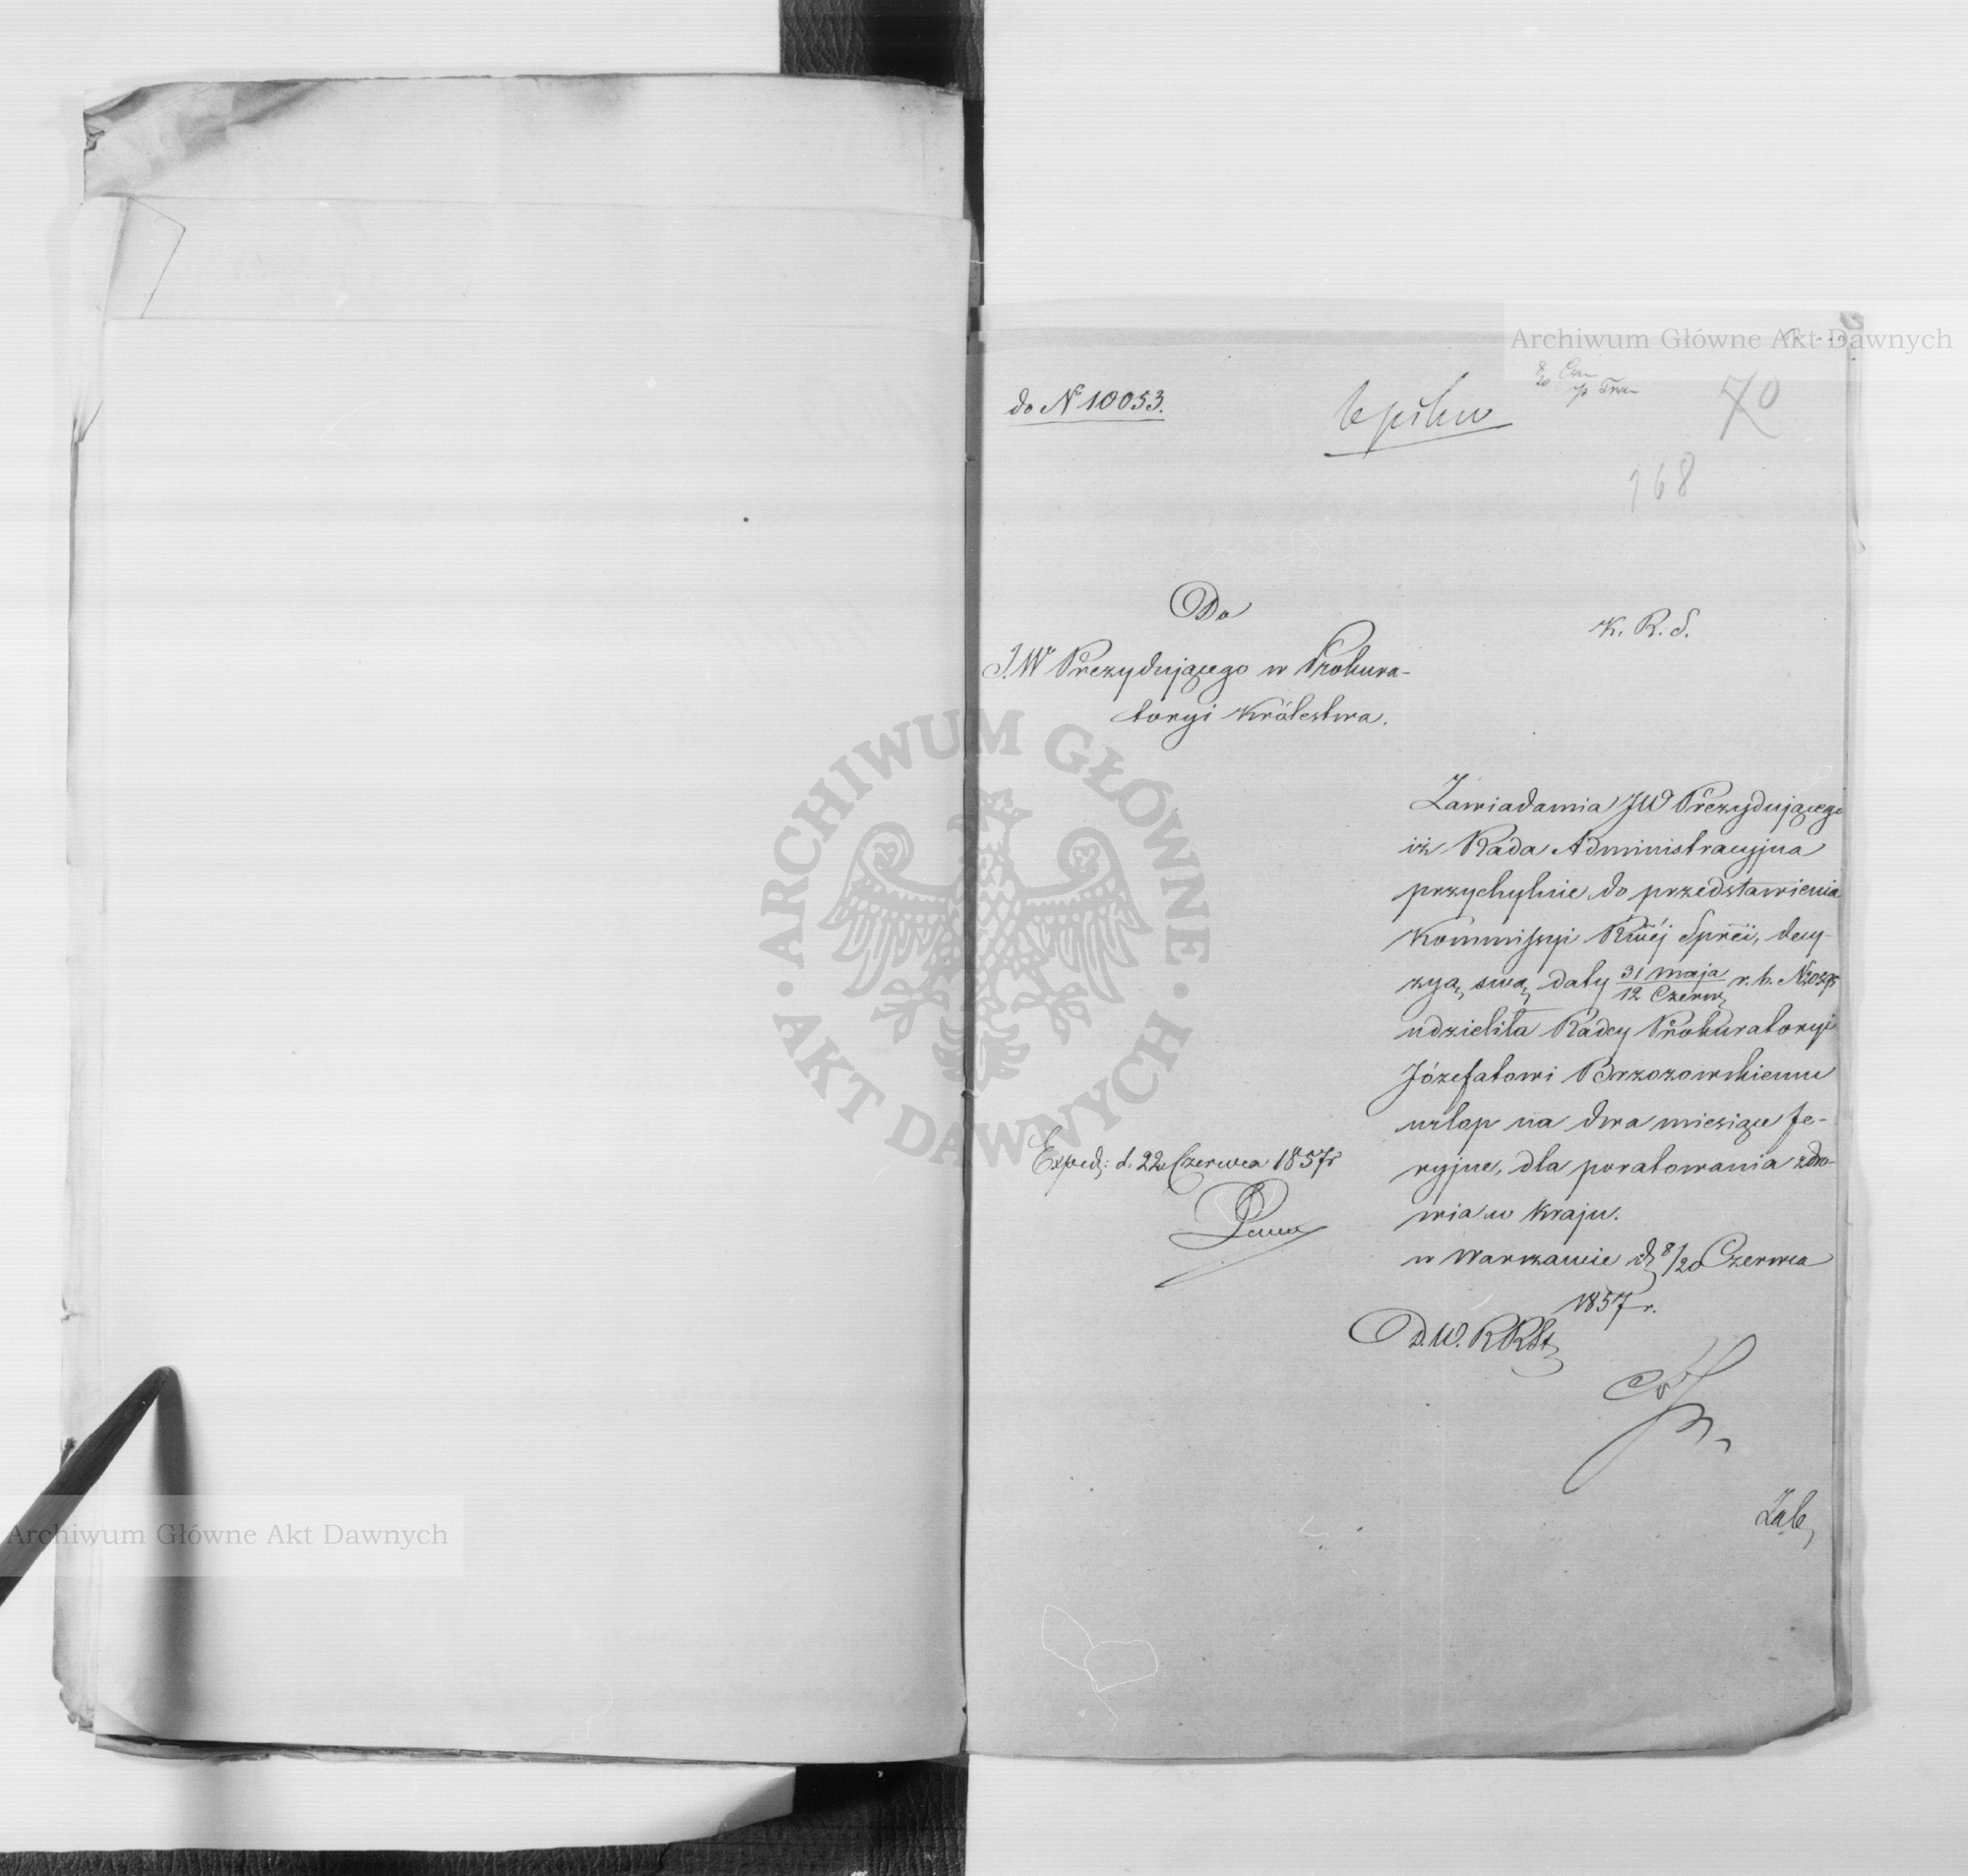 Archiwum Główne Akt Dawnych
do № 10053.
70
168
Do
J.W Prezydującego w Prokura-
toryi Królestwa.
K. R. S.
Zawiadamia JW Prezydującego
iż Rada Administracyjna
przychylnie do przedstawienia
Kommissyi Rwéj Sprei, decy-
zyą swą daty 31 maja / 12 Czerw r. b.
udzieliła Radcy Prokuratoryi
Józefatowi Brzozowskiemu
urlop na dwa miesiące fe-
ryjne, dla poratowania zdro-
wia w Kraju.
w Warszawie d. 8/20 Czerwca
1857 r.
Exped: d. 22 Czerwca 1857 r
ARCHIWUM GŁÓWNE
AKT DAWNYCH
Archiwum Główne Akt Dawnych